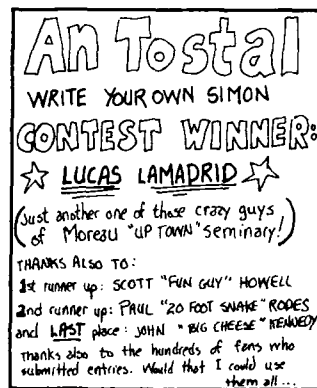 An Tostal
WRITE YOUR OWN SIMON
CONTEST WINNER:
LUCAS LAMADRID
(Just another one of those crazy guys
of Moreau "UP TOWN" seminary!)
THANKS ALSO TO:
1st runner up: SCOTT "FUN GUY" HOWELL
2nd runner up: PAUL "20 FOOT SNAKE" RODES
and LAST place: JOHN "BIG CHEESE" KENNEDY
Thanks also to the hundreds of fans who
submitted entries. Would that I could use
them all...